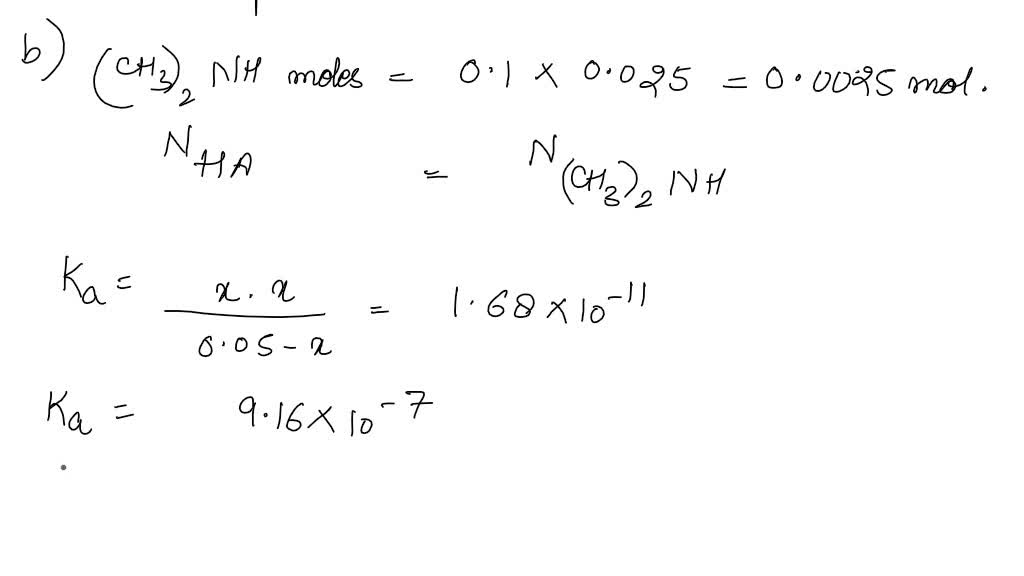 b) (CH₃)₂ NH moles = 0.1 × 0.025 = 0.0025 mol.
N_HA = N_(CH₃)₂ NH
Ka = x . x / 0.05 - x = 1.68 × 10⁻¹¹
Ka = 9.16 × 10⁻⁷